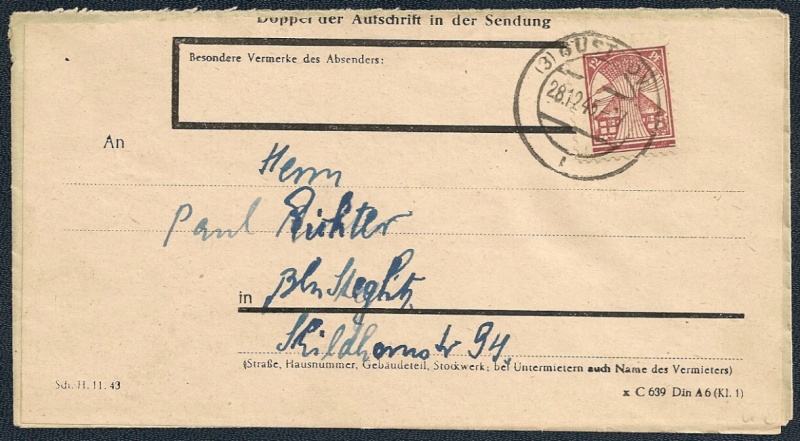 Doppel der Aufschrift in der Sendung
Besondere Vermerke des Absenders:
(3)
28.12.45
12
An
Herrn
Paul Richter
in Bln Steglitz
Schildhornstr 94.
(Straße, Hausnummer, Gebäudeteil, Stockwerk; bei Untermietern auch Name des Vermieters)
Sch. H. 11. 43
x C 639 Din A 6 (Kl. 1)